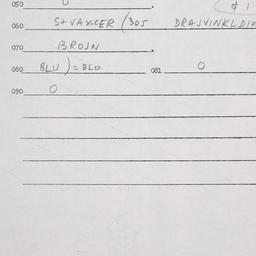 050
060 5+ VÄXCER (305 DRAJVINKLDIK
070 BROJN
080 BLU ) = BLO 081 0
090 0